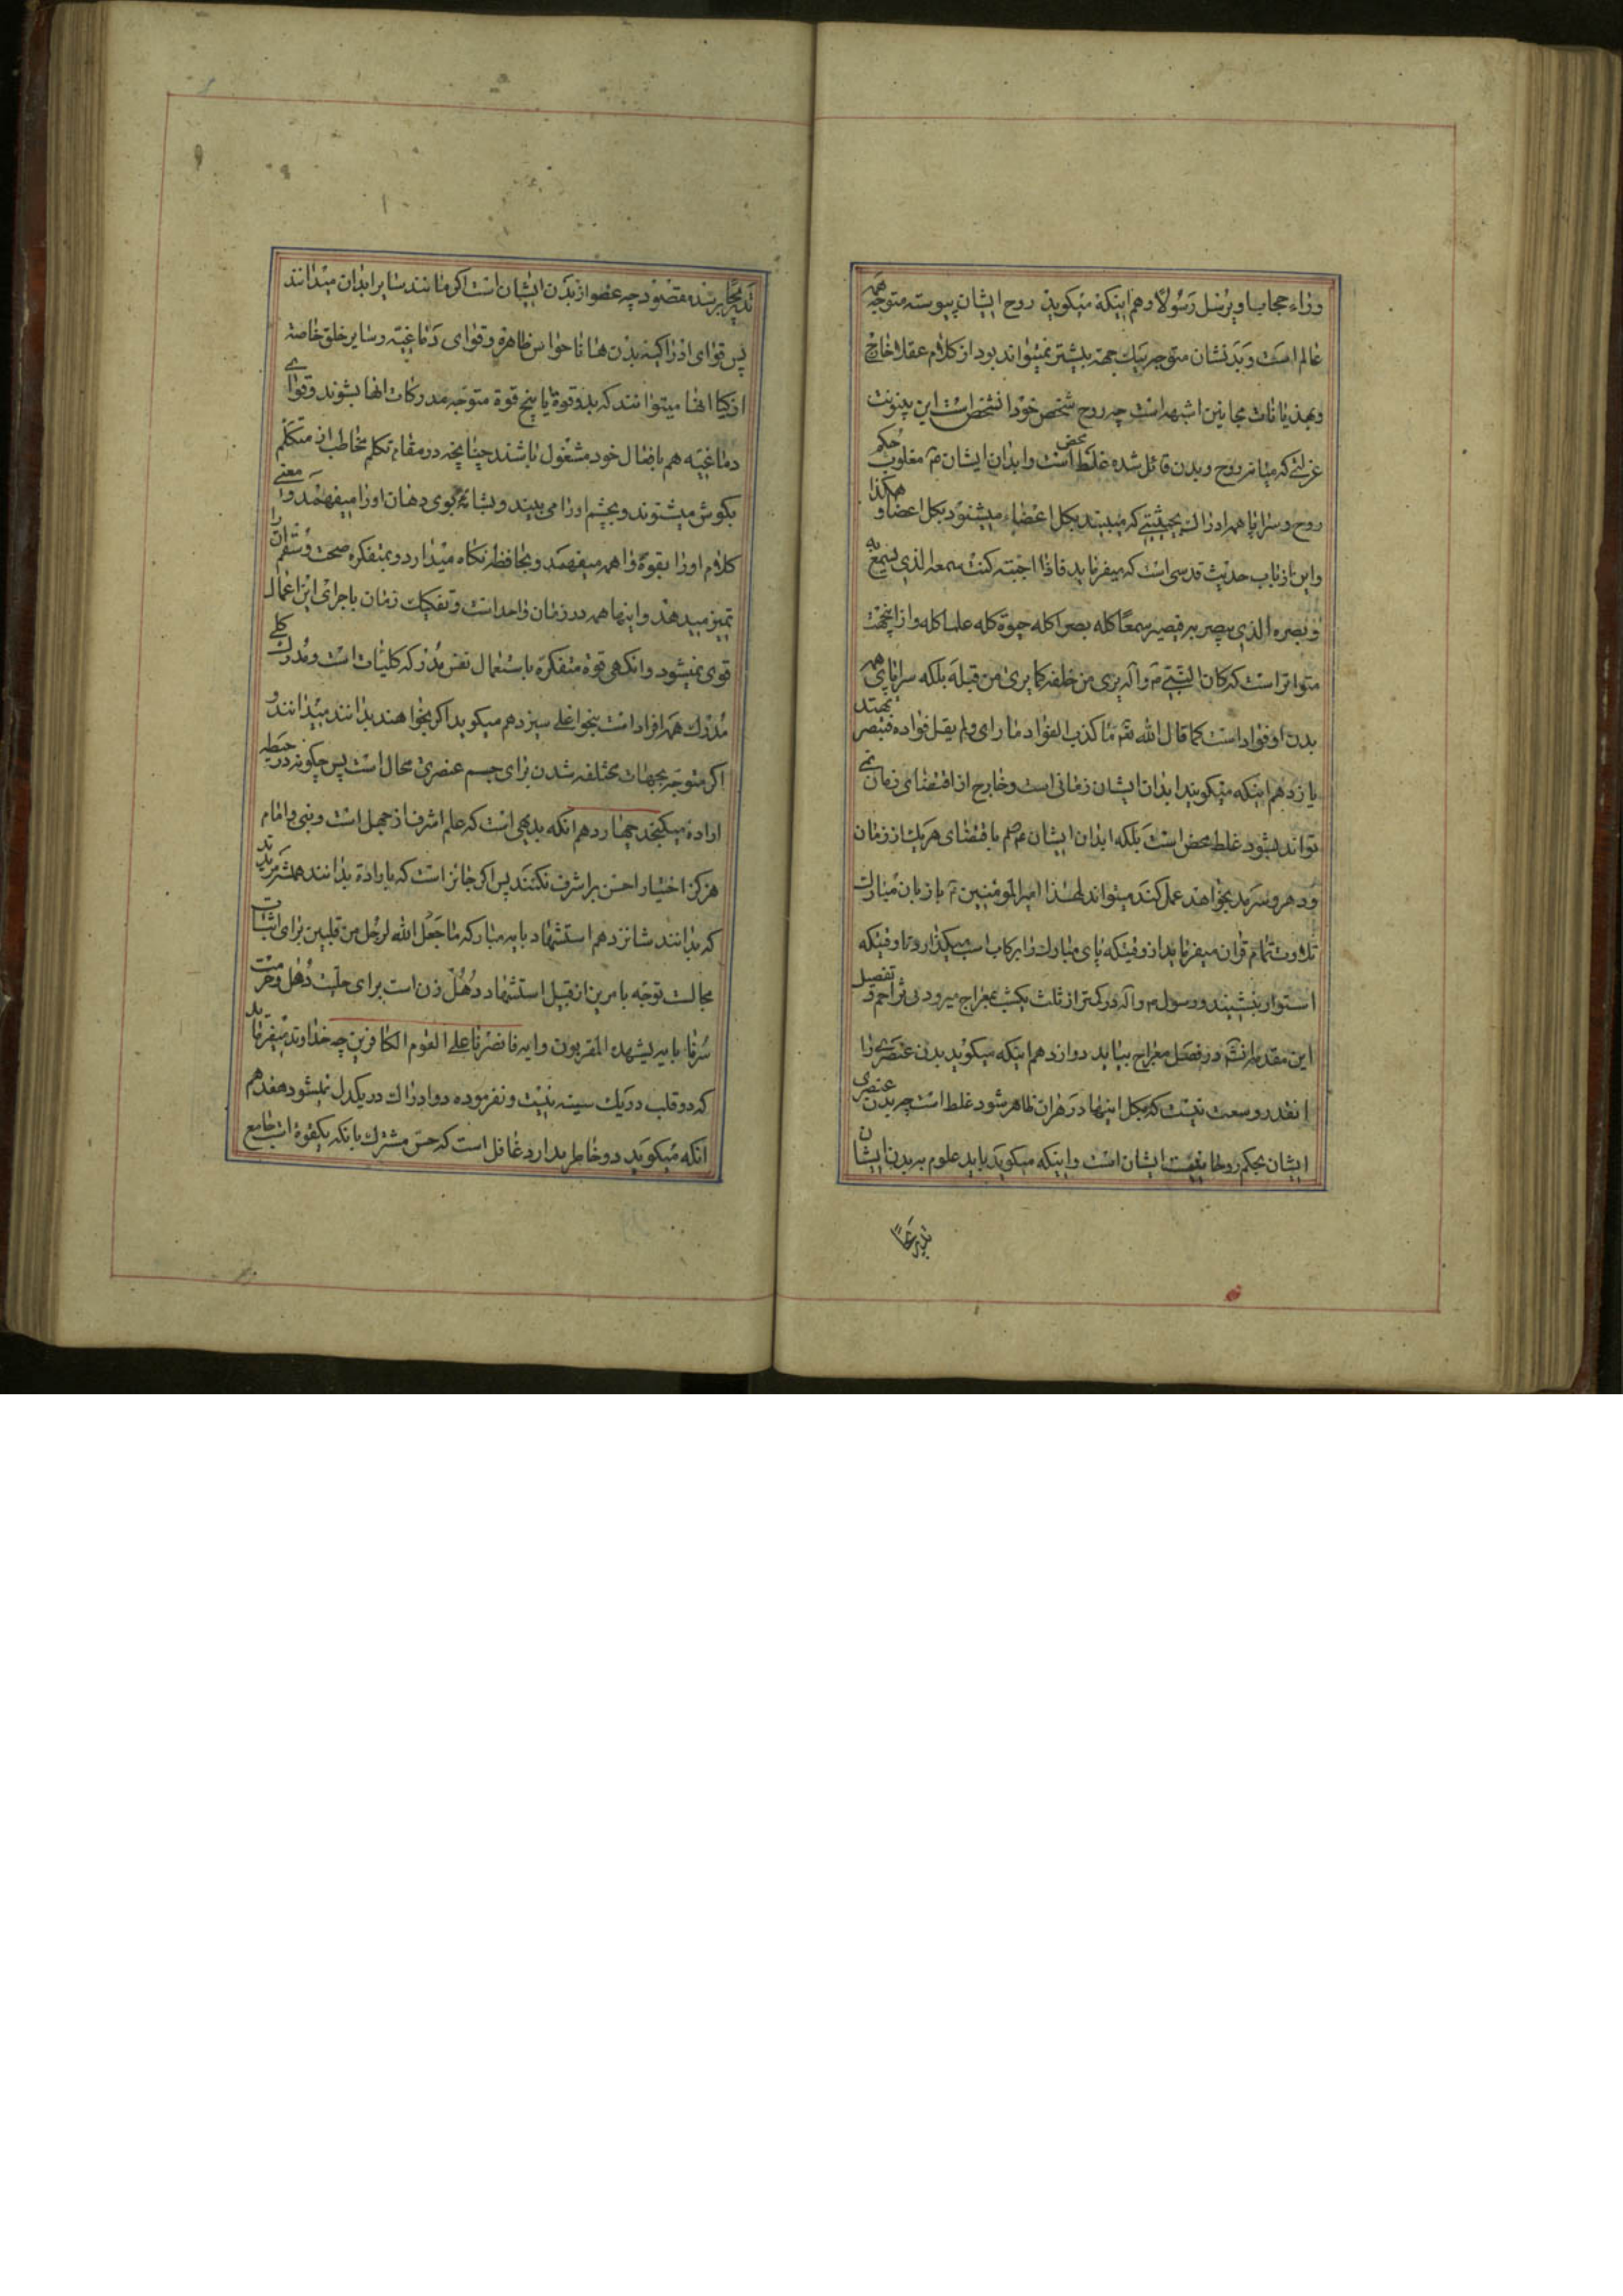 وراء حجاب او یرسل رسولا دهم اینکه میکوید روح ایشان پیوسته متوجه همه
عالم است و بدنشان متوجه بیک جهة بیشتر نمیتواند بود از کلام عقلا خارج
و بهذیانات مجانین اشبه است چه روح شخص خود آنشخص است این بینونت
عزلتی که میانه روح و بدن قائل شده غلط محض است و ابدان ایشان مغلوب حکم
روح و سراپا همه ادراک بحیثیتی که میبیند بکل اعضاء میشنود بکل اعضا و هکذا
و این از باب حدیث قدسی است که میفرماید فاذا احببته کنت سمعه الذی یسمع به
و بصره الذی یبصر به فیصیر سمعا کله بصرا کله حیوة کله علما کله و از اینجهت
متواتر است که کان النبی و آله یری من خلفه کما یری من قبله بلکه سراپای همه
بدن او فؤاد است کما قال الله تعم ما کذب الفؤاد ما رای و لم یقل فؤاده فتبصر تهتد
یازدهم اینکه میکویند ابدان ایشان زمانی است و خارج از اقتضای زمان نمی
تواند بشود غلط محض است بلکه ابدان ایشان باقتضای هر یک از زمان
و دهر و سرمد بخواهند عمل کنند میتواند لهذا امیر المؤمنین با زبان مبارک
تلاوت تمام قران میفرماید از وقتیکه پای مبارک را برکاب اسب میکذارد تا وقتیکه
استوار بنشیند و رسول و آله در کمتر از ثلث یکشب بمعراج میرود تفصیل
این مقدمه انشه در فصل معراج بیاید دوازدهم اینکه میکوید بدن عنصری را
انقدر وسعت نیست که بکل اینها در هر ان ظاهر شود غلط است چه بدن عنصری
ایشان بحکم روحانیت ایشان است و اینکه میکوید باید علوم ببدن ایشان
تدریجا
تدریجا برسد مقصود چه عضو از بدن ایشان است اکر مانند سایر ابدان میدانند
پس قوای ادراکیه بدن هانا حواس ظاهره و قوای دماغیه و سایر خلق خاصه
ازکیا انها میتوانند که بدو قوة یا پنج قوة متوجه مدرکات انها بشوند و قوای
دماغیه هم بافعال خود مشغول باشند چنانچه در مقام تکلم مخاطب از متکلم
بکوش میشنوند و بچشم او را می بیند و بشامه بوی دهان او را میفهمد و معنی
کلام او را بقوة واهمه میفهمد و بحافظه نکاه میدارد و بمتفکره صحت و سقم آن را
تمیز میدهد و اینها همه در زمان واحد است و تفکیک زمان باجرای این اعمال
قوی نمیشود و انکهی قوة متفکره باستعمال نفس مدرکه کلیات است و مدرک کلی
مدرک همه افراد است بنحو اعلی سیزدهم میکوید اکر بخواهند بدانند میدانند و
اکر متوجه بجهات مختلفه شدن برای جسم عنصری محال است پس چکونه در حیطه
اراده میکنجد چهاردهم انکه بدیهی است که علم اشرف از جهل است و نبی و امام
هرکز اختیار احسن بر اشرف نکنند پس اکر جائز است که باراده بدانند
که بدانند شانزدهم استشهاد بایه مبارکه ما جعل الله لرجل من قلبین برای اثبات
محالیت توجه بامرین از قبیل استشهاد دهل زن است برای حلیت دهل و حرمت
سرنا بایه یشهده المقربون و ایه فانصرنا علی القوم الکافرین چه خداوند میفرماید
که دو قلب در یک سینه نیست و نفرموده دو ادراک در یکدل نمیشود هفدهم
انکه میکوید دو خاطر ندارد غافل است که حس مشترک بانکه یکقوة است جامع